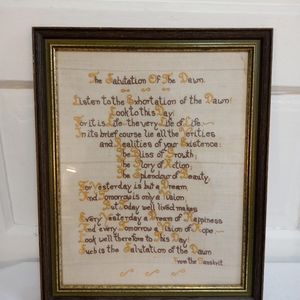 The Salutation Of The Dawn.
Listen to the Exhortation of the Dawn!
Look to this Day!
For it is Life - the very Life of Life.
In its brief course lie all the Verities
and Realities of your Existence:
The Bliss of Growth;
The Glory of Action;
The Splendour of Beauty.
For Yesterday is but a Dream
And Tomorrow is only a Vision
But Today well lived makes
Every Yesterday a Dream of Happiness
And every Tomorrow a Vision of Hope
Look well therefore to This Day!
Such is the Salutation of the Dawn.
From the Sanskrit